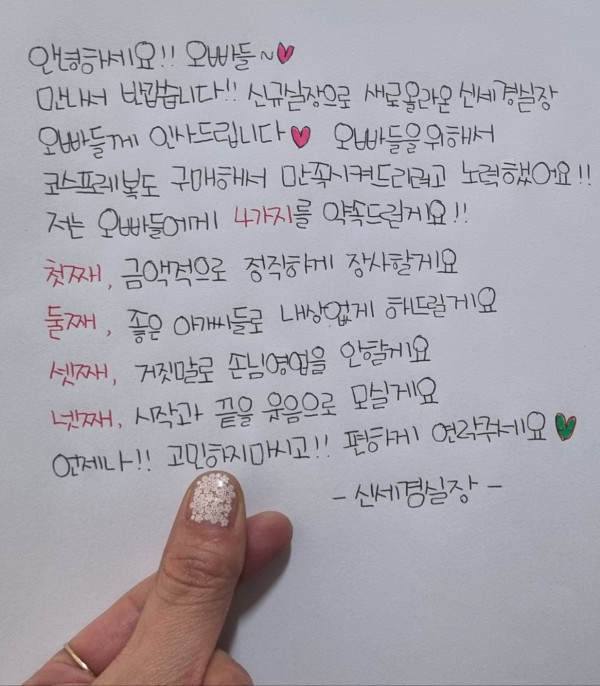 안녕하세요!! 오빠들~♥
만나서 반갑습니다!! 신규실장으로 새로올라온 신세경실장
오빠들께 인사드립니다♥ 오빠들을위해서
코스프레복도 구매해서 만족시켜드리려고 노력했어요!!
저는 오빠들에게 4가지를 약속드릴게요!!
첫째, 금액적으로 정직하게 장사할게요
둘째, 좋은 아개씨들로 내상없게 해드릴게요
셋째, 거짓말로 손님영업을 안할게요
넷째, 시작과 끝을 웃음으로 모실게요
언제나!! 고민하지마시고!! 편하게 연락주세요♥
- 신세경실장 -